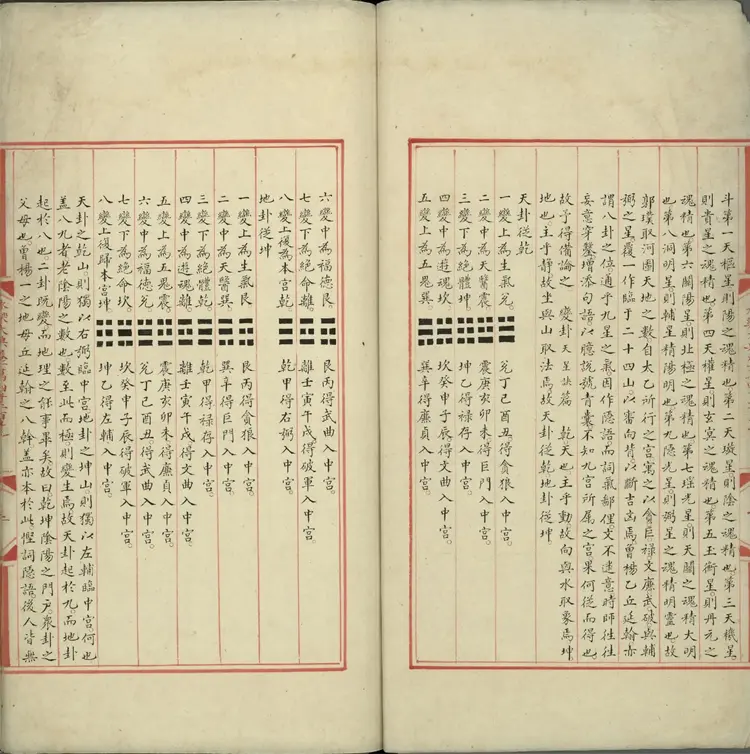 斗第一天樞星則陽之魂精也第二天璇星則陰之魂精也第三天璣星
則貴星之魂精也第四天權星則玄冥之魂精也第五玉衡星則丹元之
魂精也第六闓陽星則北極之魂精也第七瑶光星則天關之魂精大明
也第八洞明星則輔星精陽明也第九隱光星則弼星之魂精明靈也故
郭璞取河圖天地之數自太乙所行之宮寓之以貪巨禄文廉武破與輔
弼之星覆一作臨于二十四山以審向背以斷吉凶焉曾楊乙丘延翰亦
謂八卦之位通乎九星之氣因作隱語而詞氣鄙俚文不逮意時師往往
妄意穿鑿增添句語以臆說號青囊不知九宮所属之宮果何從而得也
故予得備論之 變卦 乾天也主乎動故向與水取象焉坤
地也主乎静故坐與山取法焉故天卦從乾地卦從坤
天卦從乾
一變上為生氣兌 兌丁己酉丑得貪狼入中宮
二變中為天醫震 震庚亥卯未得巨門入中宮
三變下為絕體坤 坤乙得禄存入中宮
四變中為遊魂坎 坎癸申子辰得文曲入中宮
五變上為五鬼巽 巽辛得廉貞入中宮
六變中為福德艮 艮丙得武曲入中宮
七變下為絕命離 離壬寅午戌得破軍入中宮
八變上復為本宮乾 乾甲得右弼入中宮
地卦從坤
一變上為生氣艮 艮丙得貪狼入中宮
二變中為天醫巽 巽辛得巨門入中宮
三變下為絕體乾 乾甲得禄存入中宮
四變中為遊魂離 離壬寅午戌得文曲入中宮
五變上為五鬼震 震庚亥卯未得廉貞入中宮
六變中為福德兌 兌丁己酉丑得武曲入中宮
七變下為絕命坎 坎癸申子辰得破軍入中宮
八變上復歸本宮坤 坤乙得左輔入中宮
天卦之乾山則獨以右弼臨中宮地卦之坤山則獨以左輔臨中宮何也
盖八九者老陰陽之數也數至此而極則變生焉故天卦起於九而地卦
起於八也二卦既變而地理之能事畢矣故曰乾坤陰陽之門户衆卦之
父母也曾楊一之地母丘延翰之八幹盖亦本於此慳詞隱語後人皆無